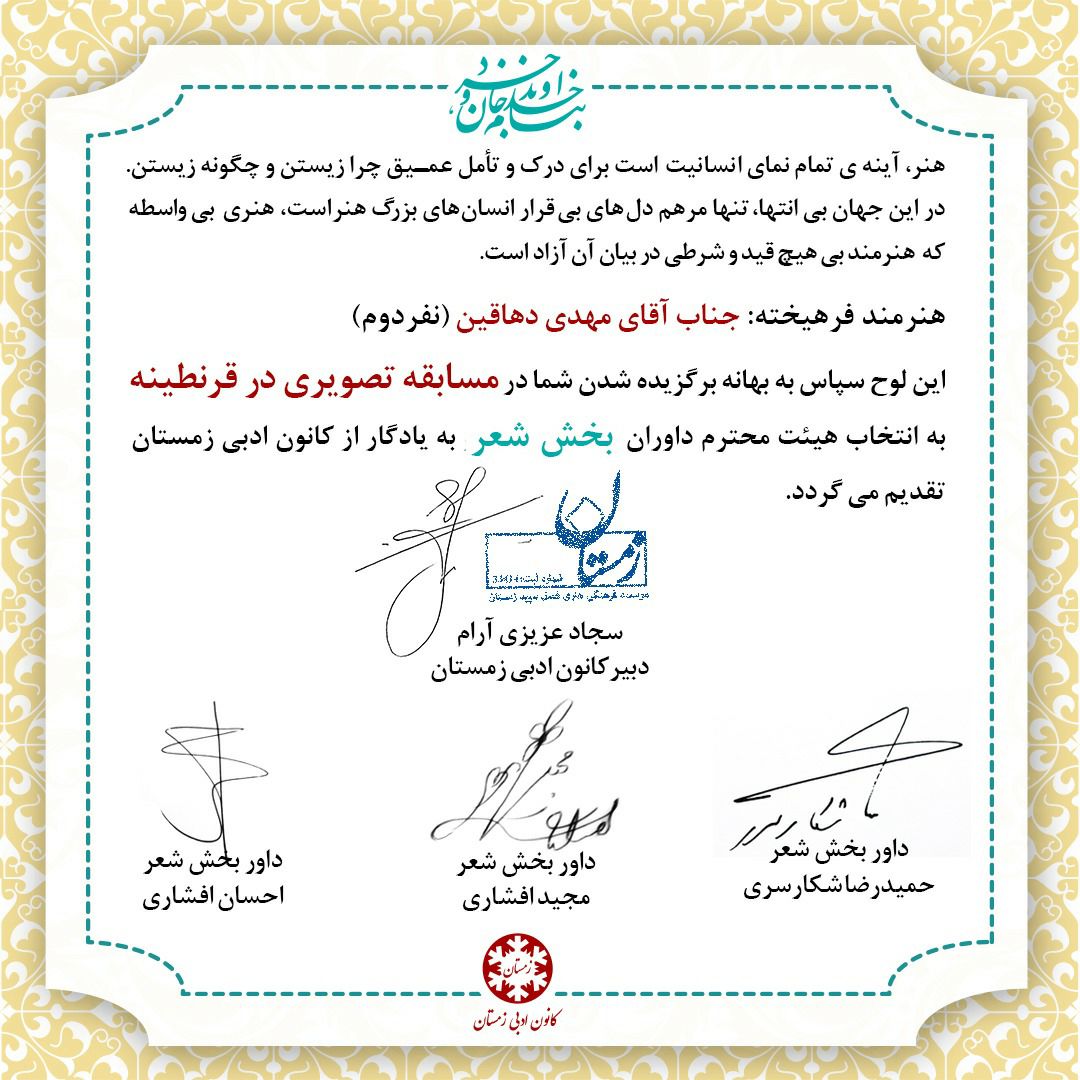 بنام خداوند جان و خرد
هنر، آینه ی تمام نمای انسانیت است برای درک و تأمل عمـیق چرا زیستن و چگونه زیستن.
در این جهان بی انتها، تنها مرهم دل‌های بی قرار انسان‌های بزرگ هنر است، هنری بی واسطه
که هنرمند بی هیچ قید و شرطی در بیان آن آزاد است.
هنرمند فرهیخته: جناب آقای مهدی دهاقین (نفر دوم)
این لوح سپاس به بهانه برگزیده شدن شما در مسابقه تصویری در قرنطینه
به انتخاب هیئت محترم داوران بخش شعر به یادگار از کانون ادبی زمستان
تقدیم می گردد.
زمستان
شماره ثبت:
موسسه فرهنگی هنری فصل سپید زمستان
سجاد عزیزی آرام
دبیر کانون ادبی زمستان
داور بخش شعر
حمیدرضا شکارسری
داور بخش شعر
مجید افشاری
داور بخش شعر
احسان افشاری
زمستان
کانون ادبی زمستان